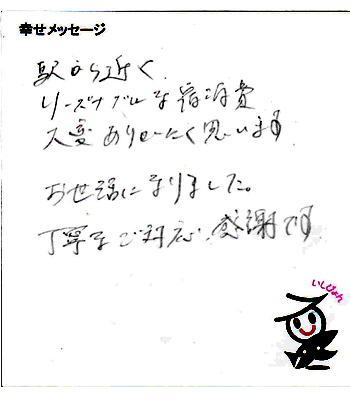 幸せメッセージ
駅から近く、
リーズナブルな宿泊費
大変ありがたく思います
お世話になりました。
丁寧なご対応、感謝です
いしぴょん